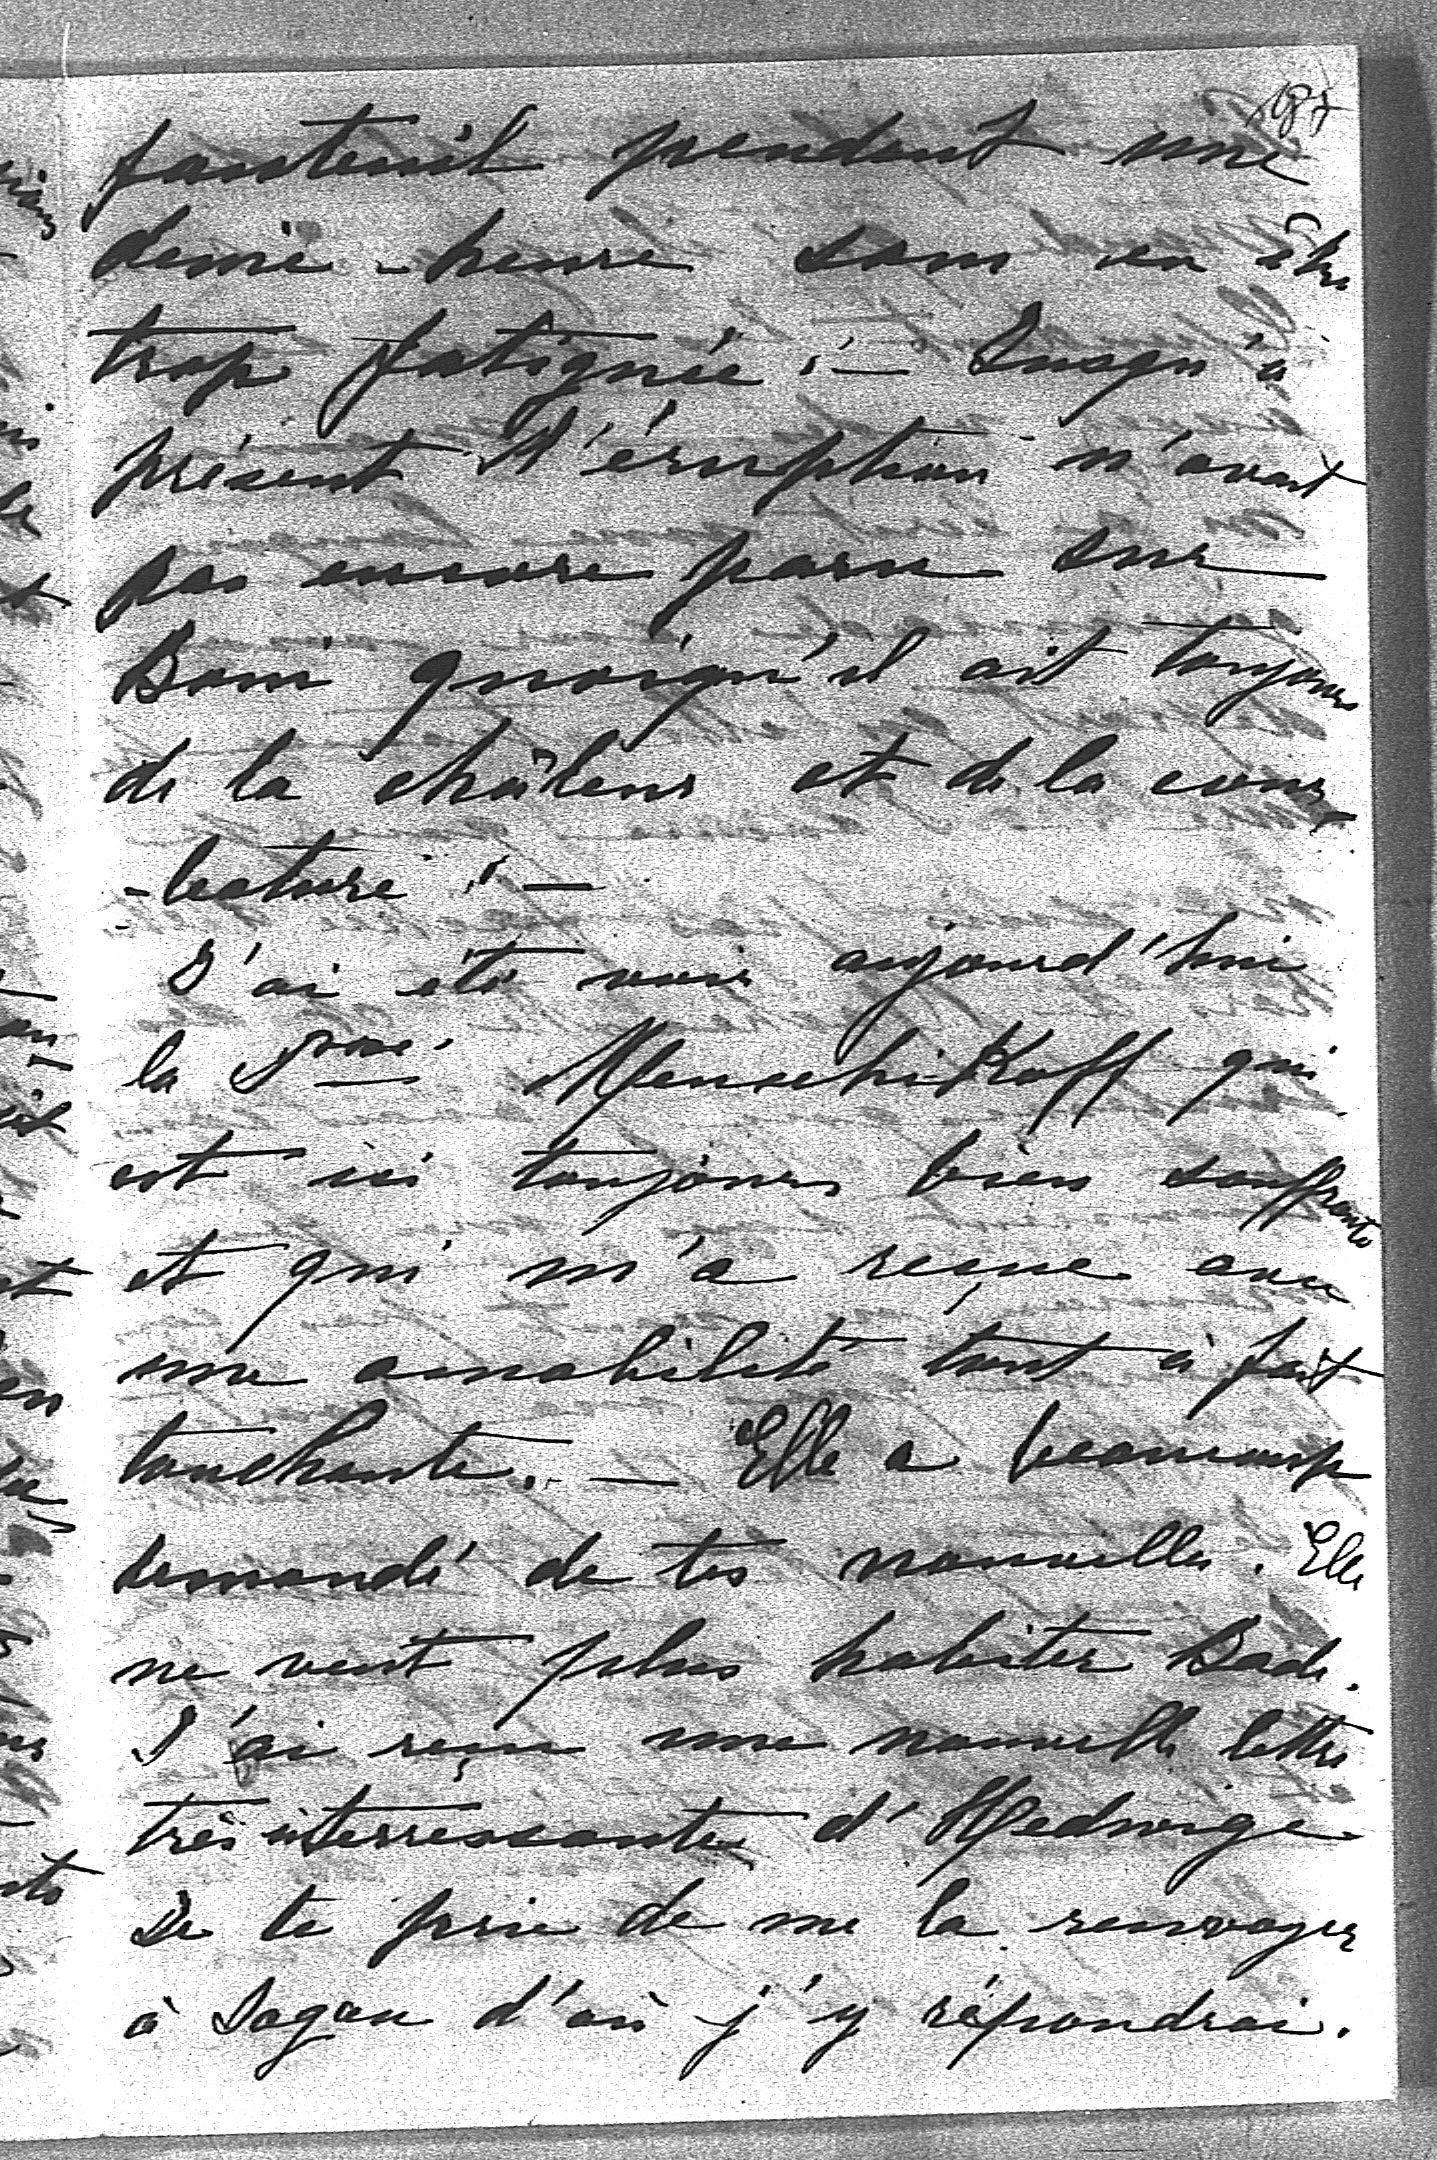 fauteuil pendant une
demie-heure sans en être
trop fatiguée ! — Jusqu'à
présent l'éruption n'avait
pas encore paru sur
Boni quoiqu'il ait toujours
de la châleur et de la cour-
-bature ! —
J'ai été voir aujourd'hui
la Psse Menschikoff qui
est ici toujours bien souffrante
et qui m'a reçue avec
une amabilité tout à fait
touchante. — Elle a beaucoup
demandé de tes nouvelles. Elle
ne veut plus habiter Bade.
J'ai reçu une nouvelle lettre
très interressante d'Hedwige
Je te prie de me la renvoyer
à Sagan d'où j'y répondrai.